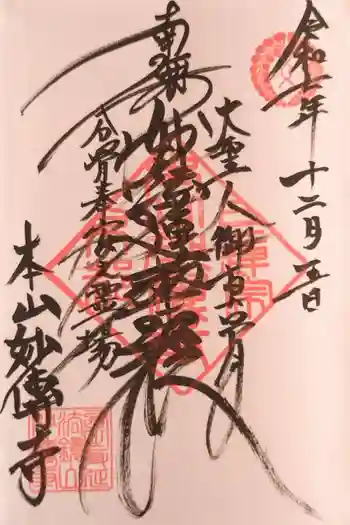 令和二年 十二月五日
大聖人御真骨
南無妙法蓮華経
分骨奉安之霊場
本山妙傳寺